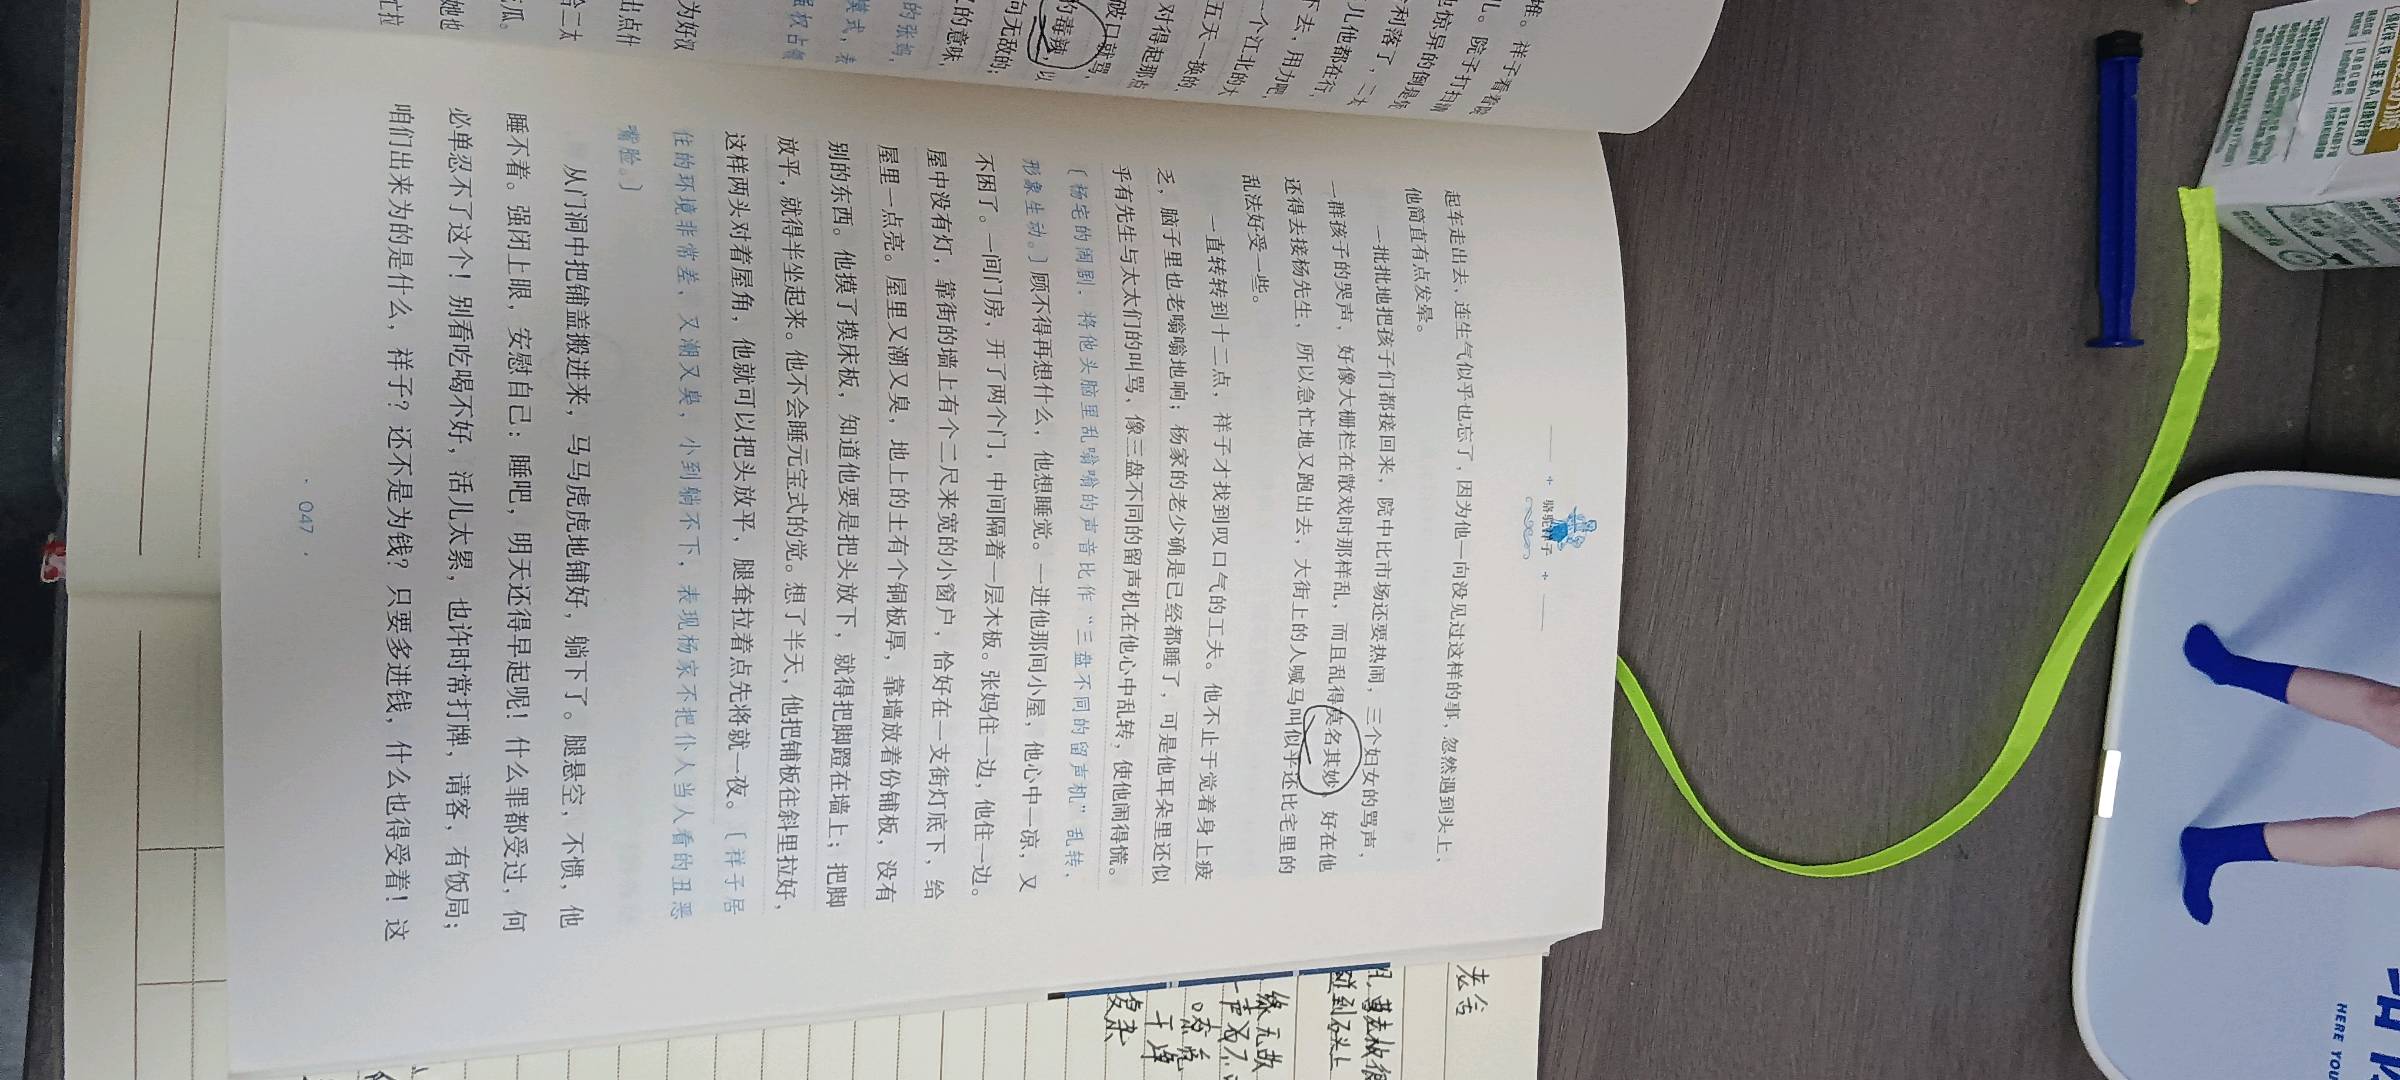 骆驼祥子
起车走出去，连生气似乎也忘了，因为他一向没见过这样的事，忽然遇到头上，
他简直有点发晕。
一批批地把孩子们都接回来，院中比市场还要热闹，三个妇女的骂声，
一群孩子的哭声，好像大栅栏在散戏时那样乱，而且乱得莫名其妙。好在他
还得去接杨先生，所以急忙地又跑出去，大街上的人喊马叫似乎还比宅里的
乱法好受一些。
一直转转到十二点，祥子才找到叹口气的工夫。他不止于觉着身上疲
乏，脑子里也老嗡嗡地响；杨家的老少确是已经都睡了，可是他耳朵里还似
乎有先生与太太们的叫骂，像三盘不同的留声机在他心中乱转，使他闹得慌。
［杨宅的闹剧，将他头脑里乱嗡嗡的声音比作“三盘不同的留声机”乱转，
形象生动。］顾不得再想什么，他想睡觉。一进他那间小屋，他心中一凉，又
不困了。一间门房，开了两个门，中间隔着一层木板。张妈住一边，他住一边。
屋中没有灯，靠街的墙上有个二尺来宽的小窗户，恰好在一支街灯底下，给
屋里一点亮。屋里又潮又臭，地上的土有个铜板厚，靠墙放着份铺板，没有
别的东西。他摸了摸床板，知道他要是把头放下，就得把脚蹬在墙上；把脚
放平，就得半坐起来。他不会睡元宝式的觉。想了半天，他把铺板往斜里拉好，
这样两头对着屋角，他就可以把头放平，腿耷拉着点先将就一夜。［祥子居
住的环境非常差，又潮又臭，小到躺不下，表现杨家不把仆人当人看的丑恶
嘴脸。］
从门洞中把铺盖搬进来，马马虎虎地铺好，躺下了。腿悬空，不惯，他
睡不着。强闭上眼，安慰自己：睡吧，明天还得早起呢！什么罪都受过，何
必单忍不了这个！别看吃喝不好，活儿太累，也许时常打牌，请客，有饭局；
咱们出来为的是什么，祥子？还不是为钱？只要多进钱，什么也得受着！这
· 047 ·
祥子看着
院子打扫
惊异的倒
利落了，二太
儿他都在行，
下去，用力吧，
一个江北的大
五天一换的，
对得起那点
破口就骂，
的毒辣，以
向无敌的；
的意味，
的张妈，
模式，表
强权占
为好汉
出点什
给二太
瓜。
她他
忙拉
老舍
碰到石头上
复杂
干净
HERE YOU